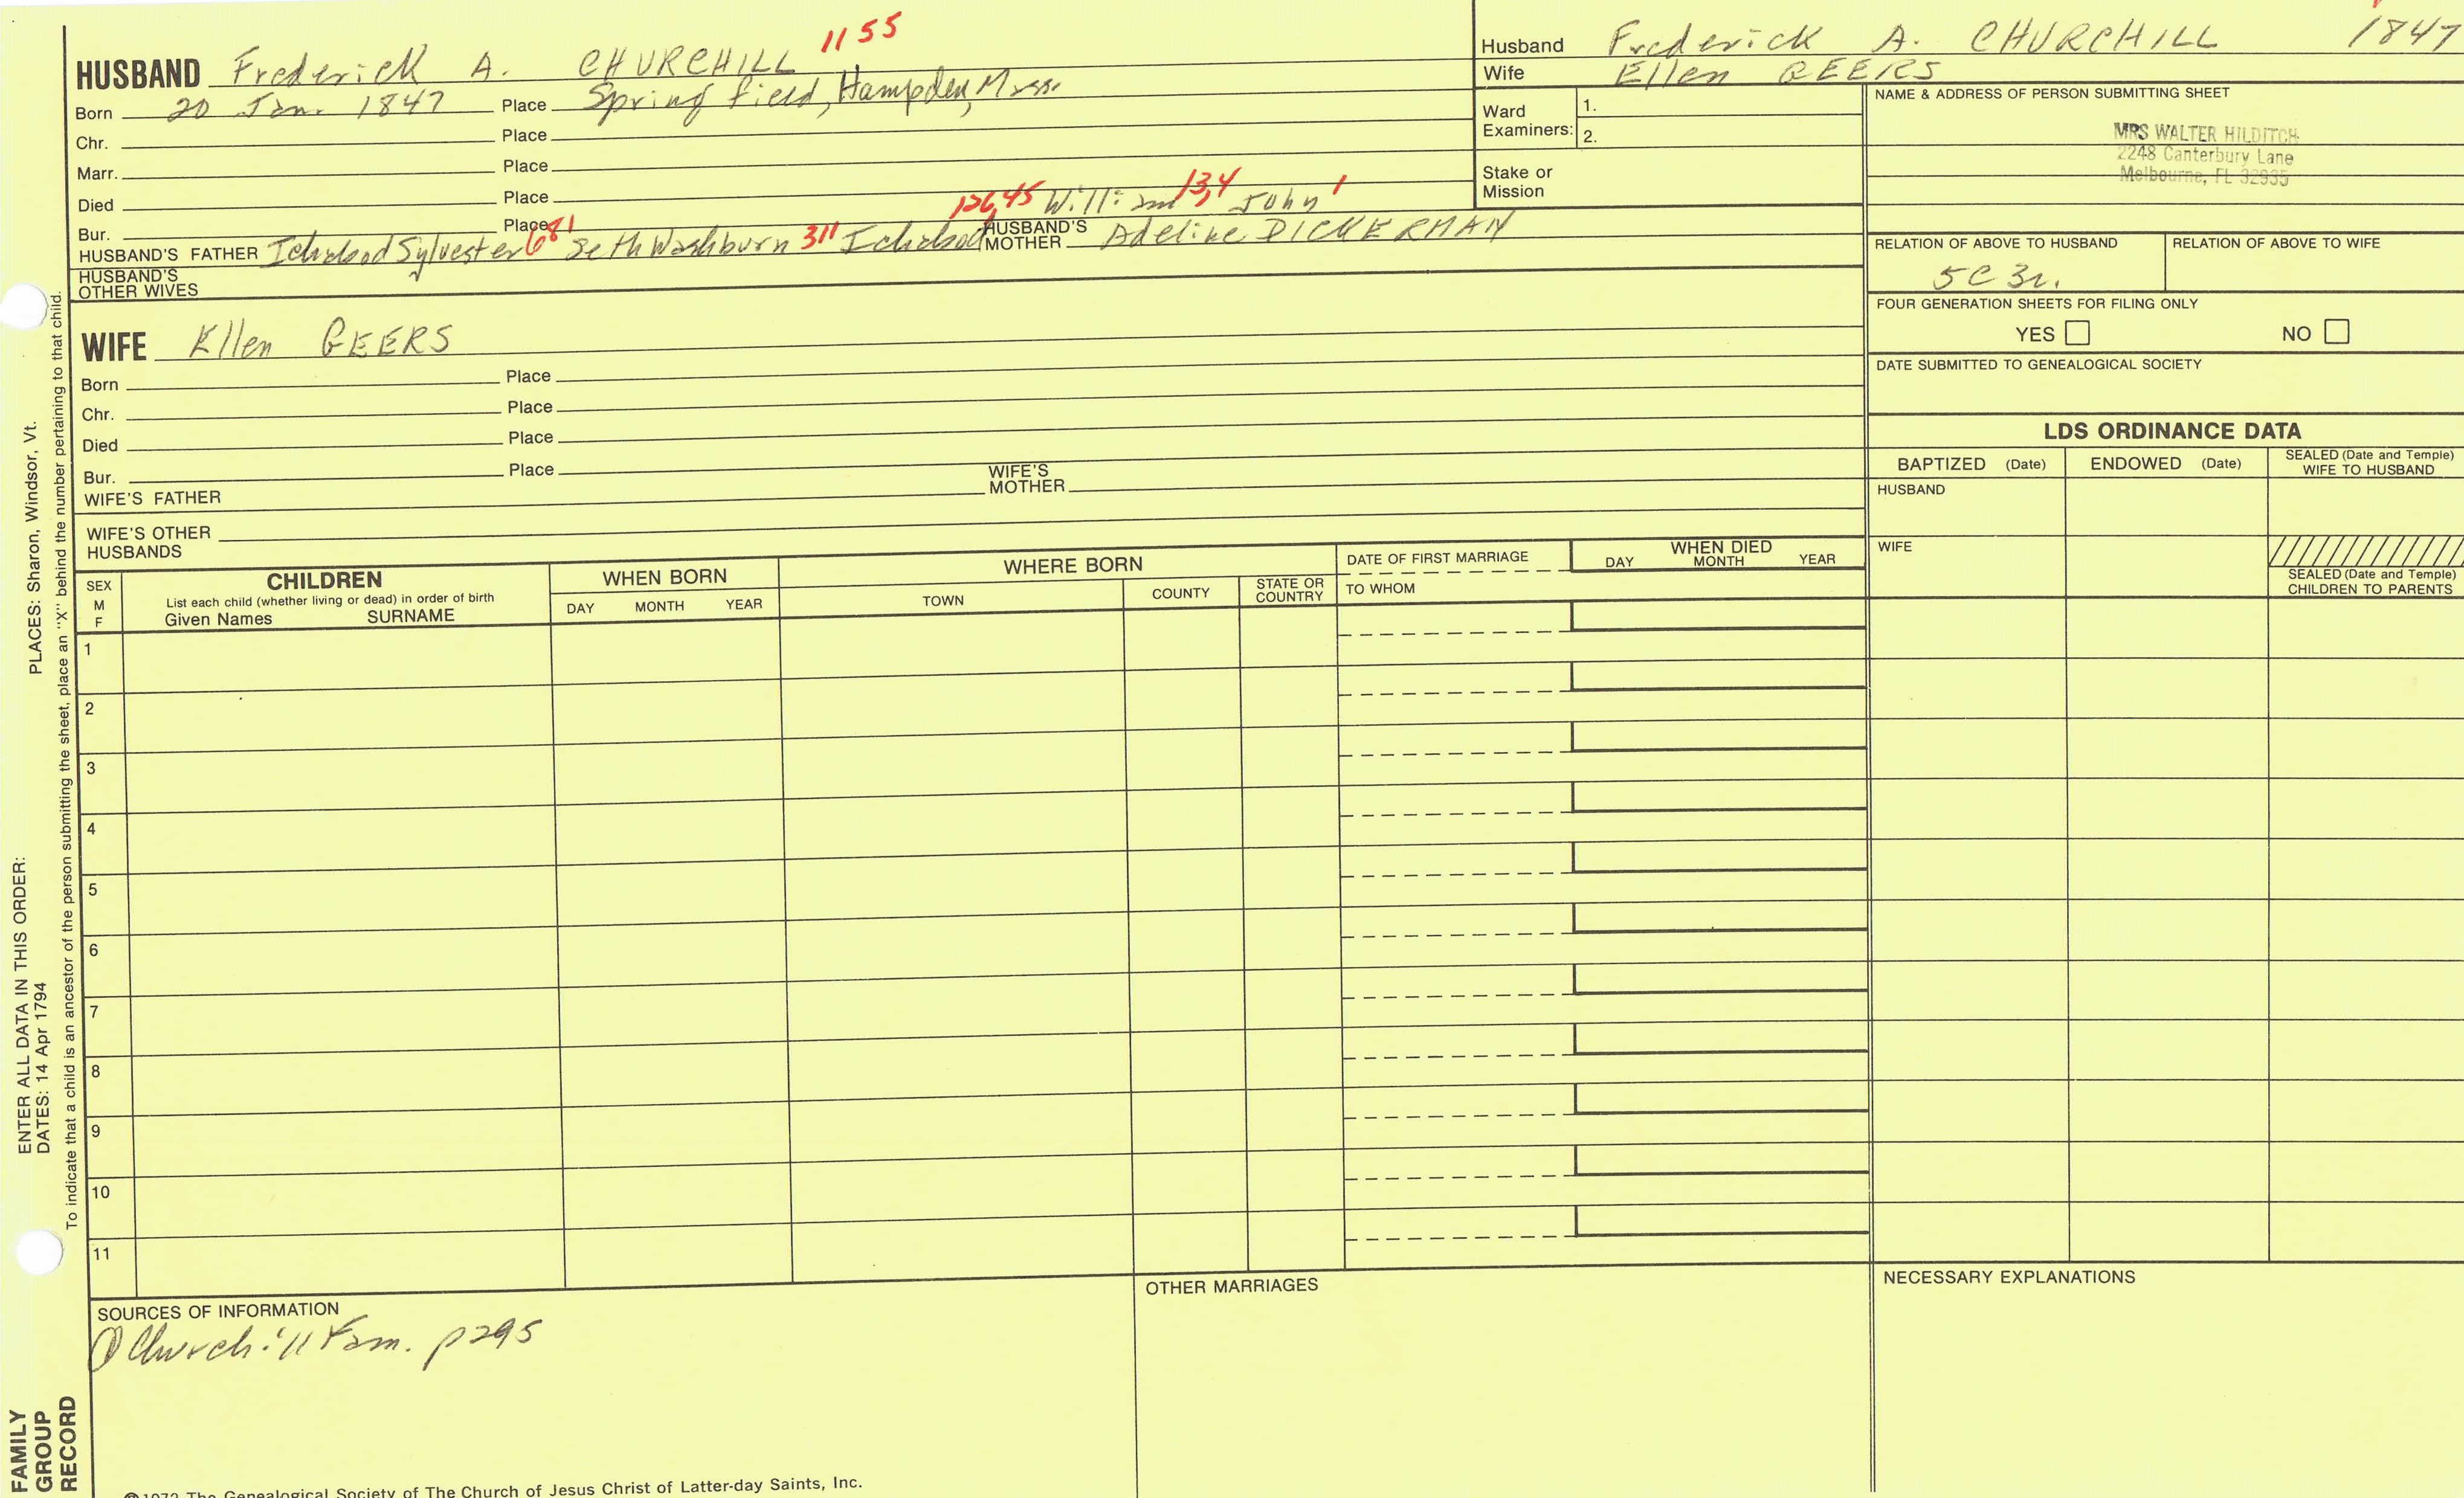 1155
HUSBAND Frederick A. CHURCHILL
Born 20 Jan. 1847 Place Springfield, Hampden, Mass.
Chr. Place
Marr. Place
Died Place
Bur. Place
126,45 William 13,4 John 1
HUSBAND'S FATHER Ichabod Sylvester 681 Seth Washburn 311 Ichabod HUSBAND'S MOTHER Adeline DICKERMAN
HUSBAND'S OTHER WIVES
WIFE Ellen GEERS
Born Place
Chr. Place
Died Place
Bur. Place
WIFE'S FATHER WIFE'S MOTHER
WIFE'S OTHER HUSBANDS
Husband Frederick A. CHURCHILL 1847
Wife Ellen GEERS
Ward Examiners: 1.
2.
Stake or Mission
NAME & ADDRESS OF PERSON SUBMITTING SHEET
MRS WALTER HILDITCH
2248 Canterbury Lane
Melbourne, FL 32935
RELATION OF ABOVE TO HUSBAND RELATION OF ABOVE TO WIFE
5C 3r.
FOUR GENERATION SHEETS FOR FILING ONLY
YES NO
DATE SUBMITTED TO GENEALOGICAL SOCIETY
LDS ORDINANCE DATA
BAPTIZED (Date) ENDOWED (Date) SEALED (Date and Temple) WIFE TO HUSBAND
HUSBAND
WIFE
SEALED (Date and Temple) CHILDREN TO PARENTS
SEX M F
CHILDREN
List each child (whether living or dead) in order of birth
Given Names SURNAME
WHEN BORN
DAY MONTH YEAR
WHERE BORN
TOWN COUNTY STATE OR COUNTRY
DATE OF FIRST MARRIAGE
TO WHOM
WHEN DIED
DAY MONTH YEAR
1
2
3
4
5
6
7
8
9
10
11
SOURCES OF INFORMATION
① Churchill Fam. p295
OTHER MARRIAGES
NECESSARY EXPLANATIONS
©1972 The Genealogical Society of The Church of Jesus Christ of Latter-day Saints, Inc.
ENTER ALL DATA IN THIS ORDER:
DATES: 14 Apr 1794
PLACES: Sharon, Windsor, Vt.
To indicate that a child is an ancestor of the person submitting the sheet, place an "X" behind the number pertaining to that child.
FAMILY
GROUP
RECORD